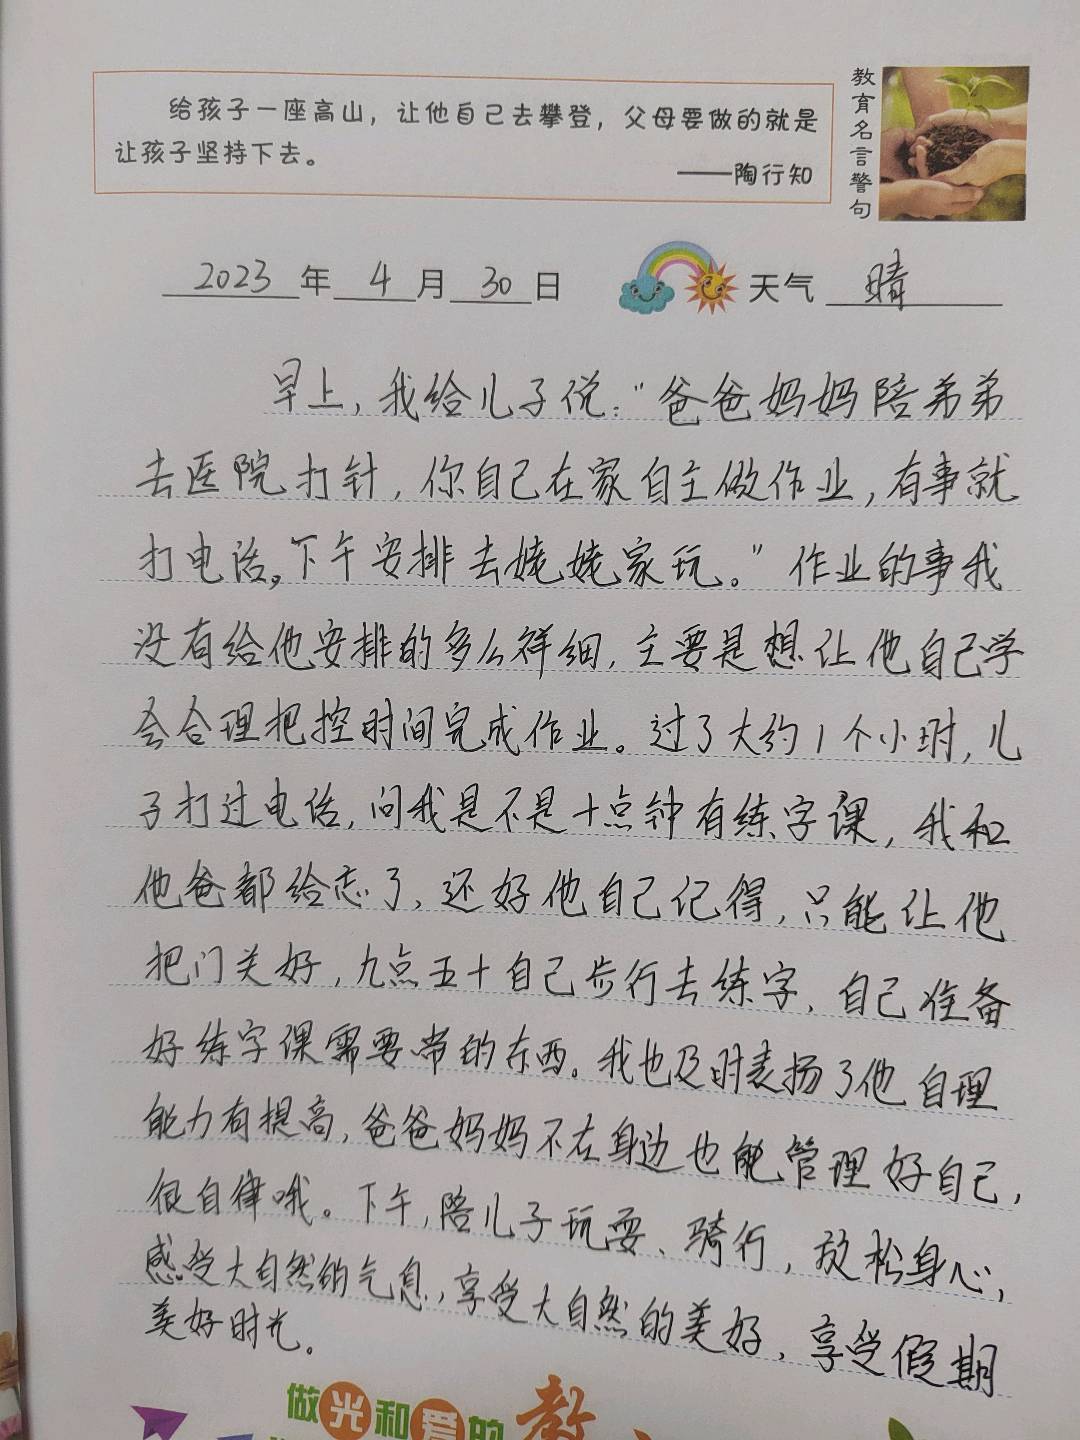 给孩子一座高山，让他自己去攀登，父母要做的就是
让孩子坚持下去。
——陶行知
教育名言警句
2023年4月30日 天气 晴
早上，我给儿子说：“爸爸妈妈陪弟弟
去医院打针，你自己在家自主做作业，有事就
打电话。下午安排去姥姥家玩。”作业的事我
没有给他安排的多么祥细，主要是想让他自己学
会合理把控时间完成作业。过了大约1个小时，儿
子打过电话，问我是不是十点钟有练字课，我和
他爸都给忘了，还好他自己记得，只能让他
把门关好，九点五十自己步行去练字，自己准备
好练字课需要带的东西。我也及时表扬了他自理
能力有提高，爸爸妈妈不在身边也能管理好自己，
很自律哦。下午，陪儿子玩耍、骑行，放松身心，
感受大自然的气息，享受大自然的美好，享受假期
美好时光。
做光和爱的教